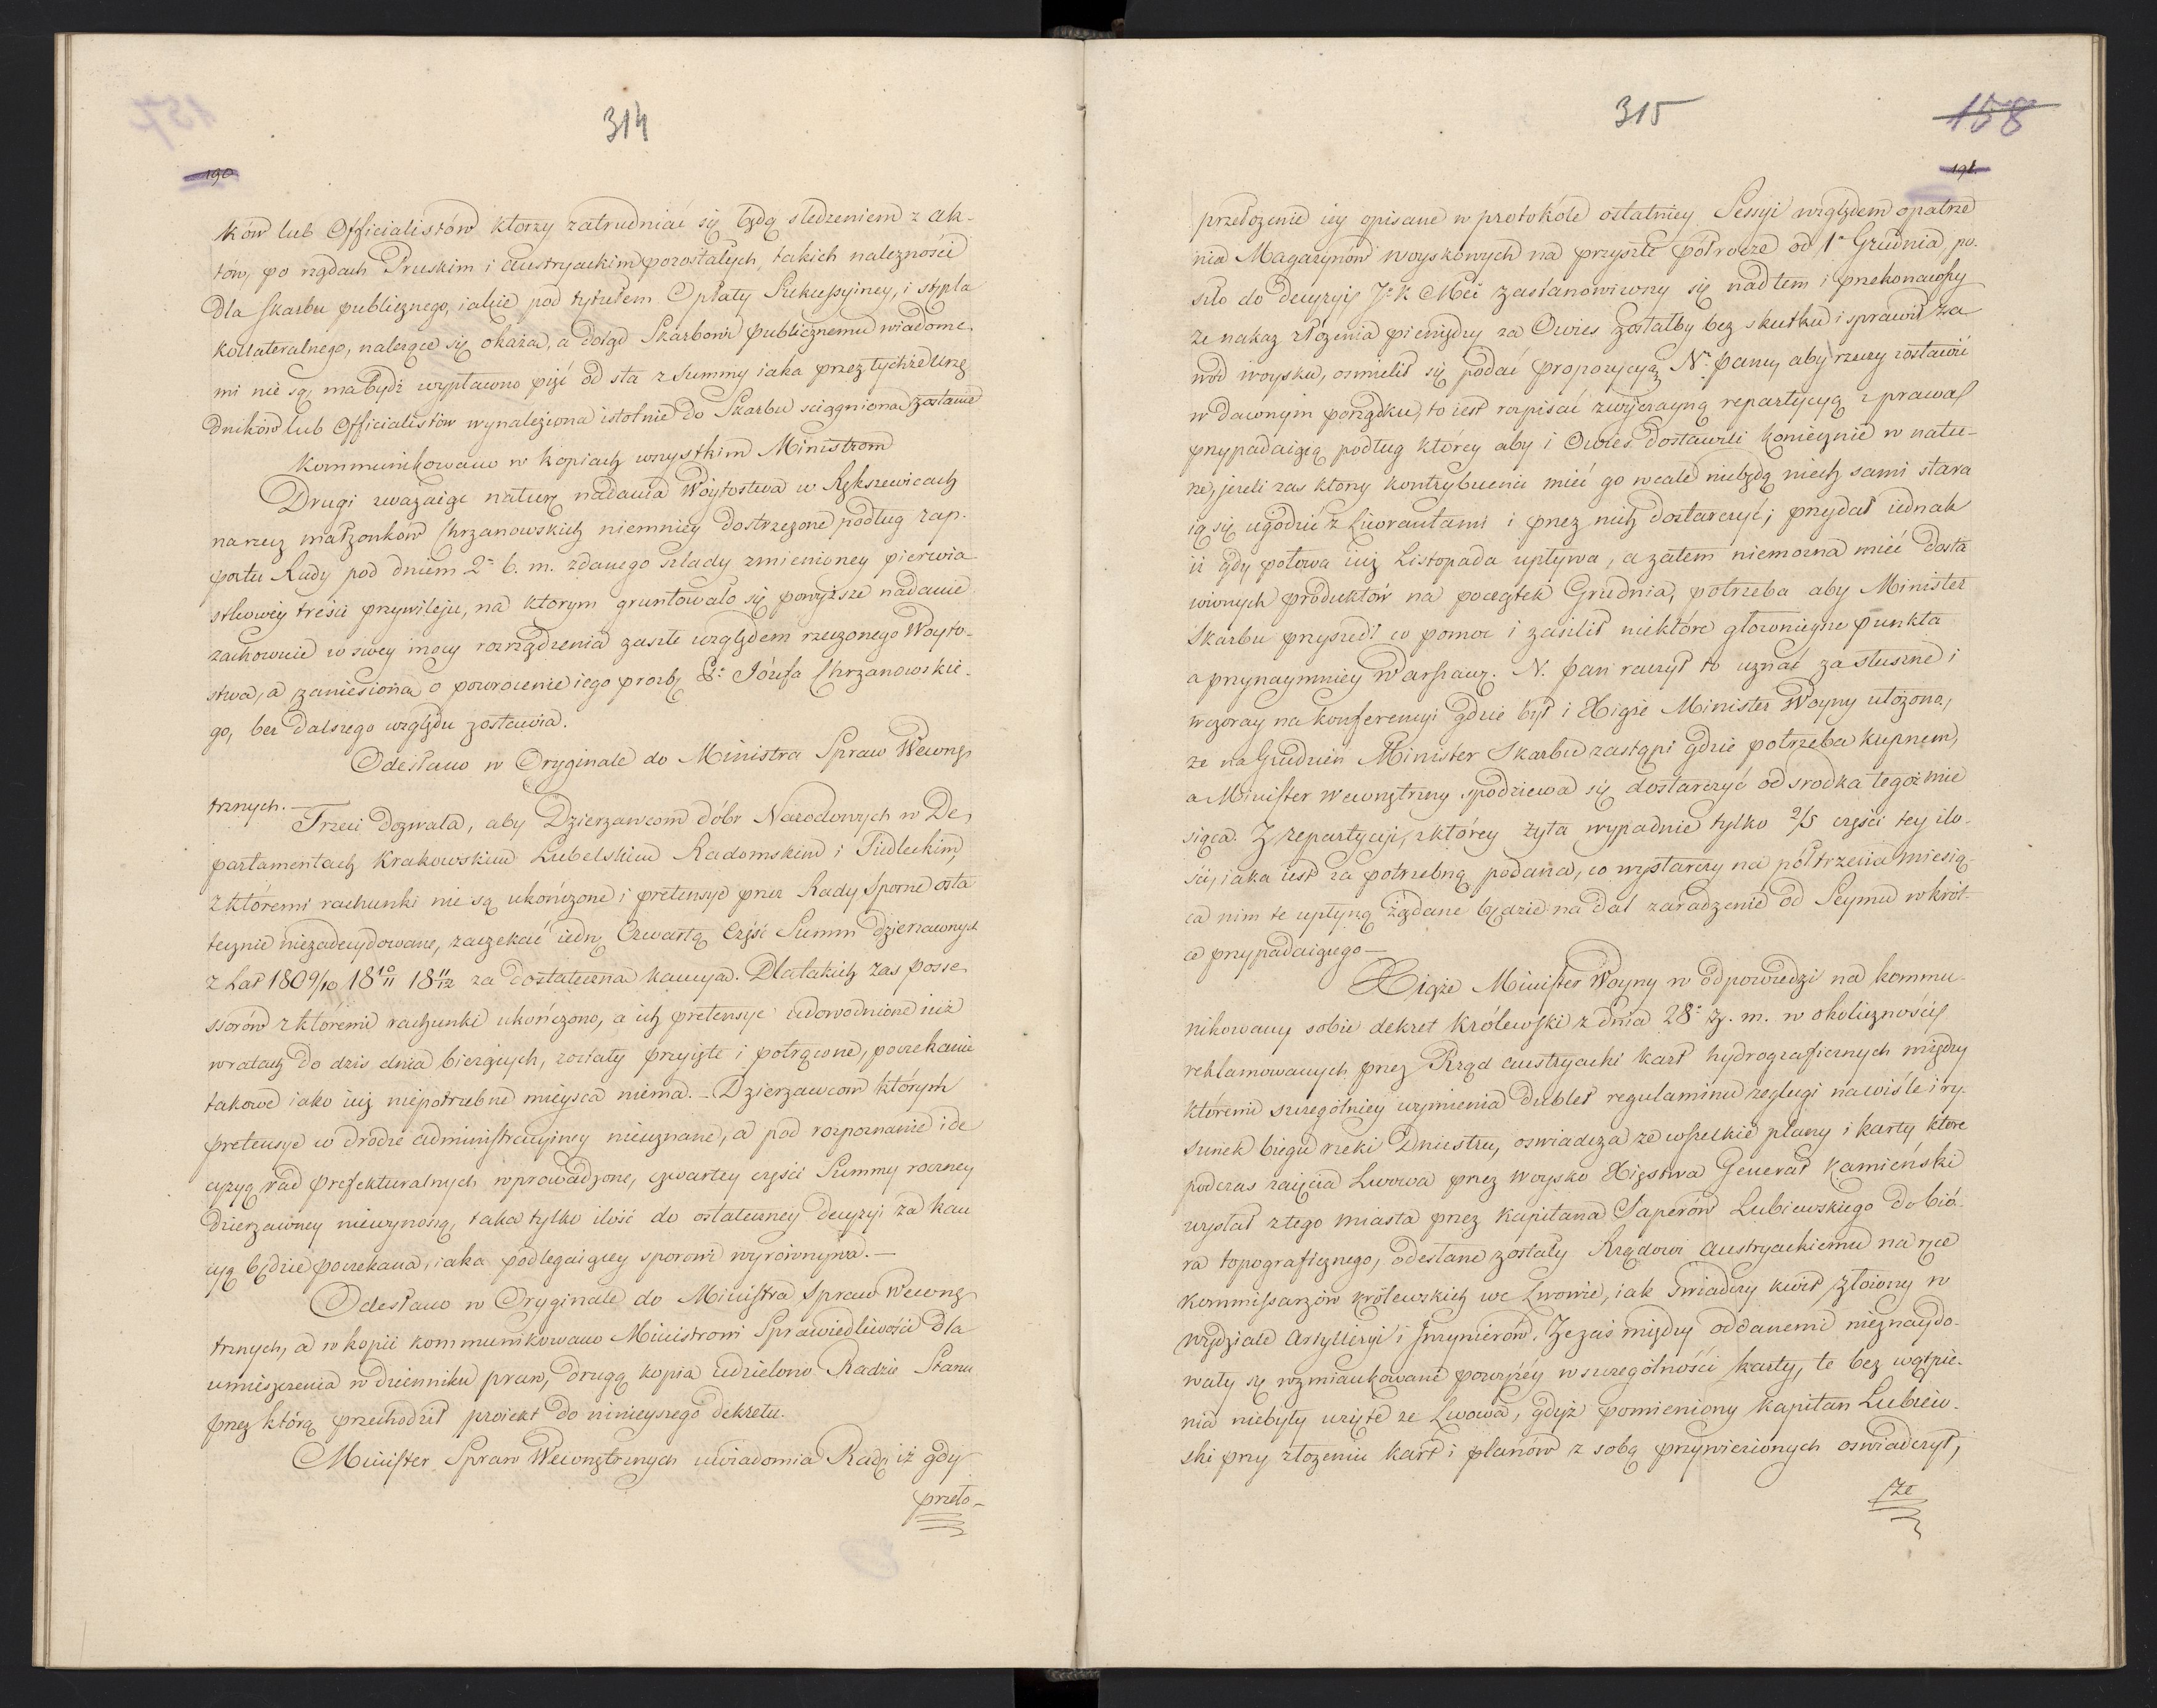 314
190
ków lub Officialistów ktorzy zatrudniać się będą sledzeniem z ak-
tów, po rządach Pruskim i Austryackim pozostałych, takich należności
dla skarbu publicznego, iakie pod tytułem Opłaty Sukcessyiney, i stępla
kollateralnego, należące się okáża, a dotąd Skarbowi publicznemu wiadome.
mi nie są, ma bydź wypłacono pięć od sta z Summy iaka przez tychże Urzę
dników lub Officialistów wynaleziona istotnie do Skarbu sciągniona zostanie
Kommunikowano w kopiach wszystkim Ministrom
Drugi zważaiąc naturę nadania Woytostwa w Rększewicach
na rzecz małżonków Chrzanowskich niemniey dostrzeżone podług rap-
portu Rady pod dniem 2º b. m. zdanego szlady zmienioney pierwia
stkowey treści przywileju, na ktorym gruntowało się powyższe nadanie
zachownie w swey mocy rozrządzenia zaszłe względem rzeczonego Woyto-
stwa, a zaniesiona o powrócenie iego prozbę P. Józefa Chrzanowskie-
go, bez dalszego względu zostawia.
Odesłano w Oryginale do Ministra Spraw Wewnę
trznych.
Trzeci dozwala, aby Dzierzawcom dóbr Narodowych w De
partamentach Krakowskim Lubelskim Radomskim i Siedleckim,
z któremi rachunki nie są ukończone i pretensye przez Rady sporne osta
tecznie niezadecydowane, zaczekać iedną Czwartą Część Summ dzierzawnych
z Lat 1809/10 18 10/11 18 11/12 za dostateczna kaucyą. Dla takich zas posse
ssorów z któremi rachunki ukończono, a ich pretensye udowodnione iuż
w ratach do dzis dnia bieżących, zostały przyięte i potrącone, poczekanie
takowe iako iuż niepotrzebne mieysca niema. - Dzierzawcom których
pretensye w drodze administracyiney nieuznane, a pod rozpoznanie i de
cyzyą rad prefekturalnych wprowadzone, czwartey części Summy roczney
dzierzawney niewynoszą, taka tylko ilość do ostateczney decyzyi za kau
cyą będzie poczekana, iaka podlegaiącey sporowi wyrównywa. —
Odesłano w Oryginale do Ministra Spraw Wewnę
trznych, a w kopii kommunikowano Ministrowi Sprawiedliwości dla
umieszczenia w dzienniku praw, drugą kopia udzielono Radzie Stanu
przez którą przechodził proiekt do ninieyszego dekretu.
Minister Spraw Wewnętrznych uwiadomia Radę iż gdy
przeło-
315
158
191.
przełożenie iey opisane w protokóle ostatniey Sessyi względem opatrze
nia Magazynów woyskowych na przyszłe półrocze od 1º Grudnia po.
szło do decyzyi J. K Mci zastanowiwszy się nad tem i przekonawszy
że nakaz złożenia pieniędzy za Owies zostałby bez skutku i sprawił za
wod woysku, osmielił się podać propozycyą N. panu, aby rzeczy zostawić
w dawnym porządku, to iest rozpisać zwyczayną repartycyą z prawa
przypadaiącą podług którey aby i Owies dostawili koniecznie w natu-
rze, jeżeli zas ktorzy kontrybuenci mieć go wcale niebędą niech sami stara
ią się ugodzić z Liwerantami i przez nich dostarczyć; przydał iednak
iż gdy połowa iuż Listopada upływa, a zatem niemożna mieć dosta
wionych produktów na początek Grudnia, potrzeba aby Minister
Skarbu przyszedł w pomoc i zasilił niektóre głownieysze punkta
a przynaymniey Warszawę. N. Pan raczył to uznać za słuszne i
wczoray na konferencyi gdzie był i Xiąże Minister Woyny ułożono,
że na Grudzień Minister Skarbu zastąpi gdzie potrzeba kupnem,
a Minister Wewnętrzny spodziewa się dostarczyć od srodka tegoż mie
siąca. Z repartycyi, z którey żyta wypadnie tylko 2/5 części tey ilo-
sci, iaka iest za potrzebną podana, co wystarczy na półtrzecia miesią-
ca nim te upłyną żądane będzie na dal zaradzenie od Seymu wkrót-
ce przypadaiącego —
Xiąże Minister Woyny w odpowiedzi na kommu
nikowany sobie dekret Królewski z dnia 28º z. m. w okoliczności
reklamowanych przez Rząd austryacki kart hydrograficznych między
któremi szczególniey wymienia dublet regulaminu żeglugi na wiśle i ry-
sunek biegu rzeki Dniestru, oswiadcza że wszelkie plany i karty które
podczas zaięcia Lwowa przez woysko Xięstwa Generał Kamieński
wysłał z tego miasta przez Kapitana Saperów Lubiewskiego do bió-
ra topograficznego, odesłane zostały Rządowi Austryackiemu na ręce
Kommissarzów królewskich we Lwowie, iak świadczy kwit złożony w
wydziale Artylleryi i Inżynierów. Że zaś między oddanemi nieznaydo-
wały się wzmiankowane powyżéy w szczególności karty, te bez wątpie-
nia niebyły wzięte ze Lwowa, gdyż pomieniony Kapitan Lubiew-
ski przy złożeniu kart i planów z sobą przywiezionych oswiadczył,
że